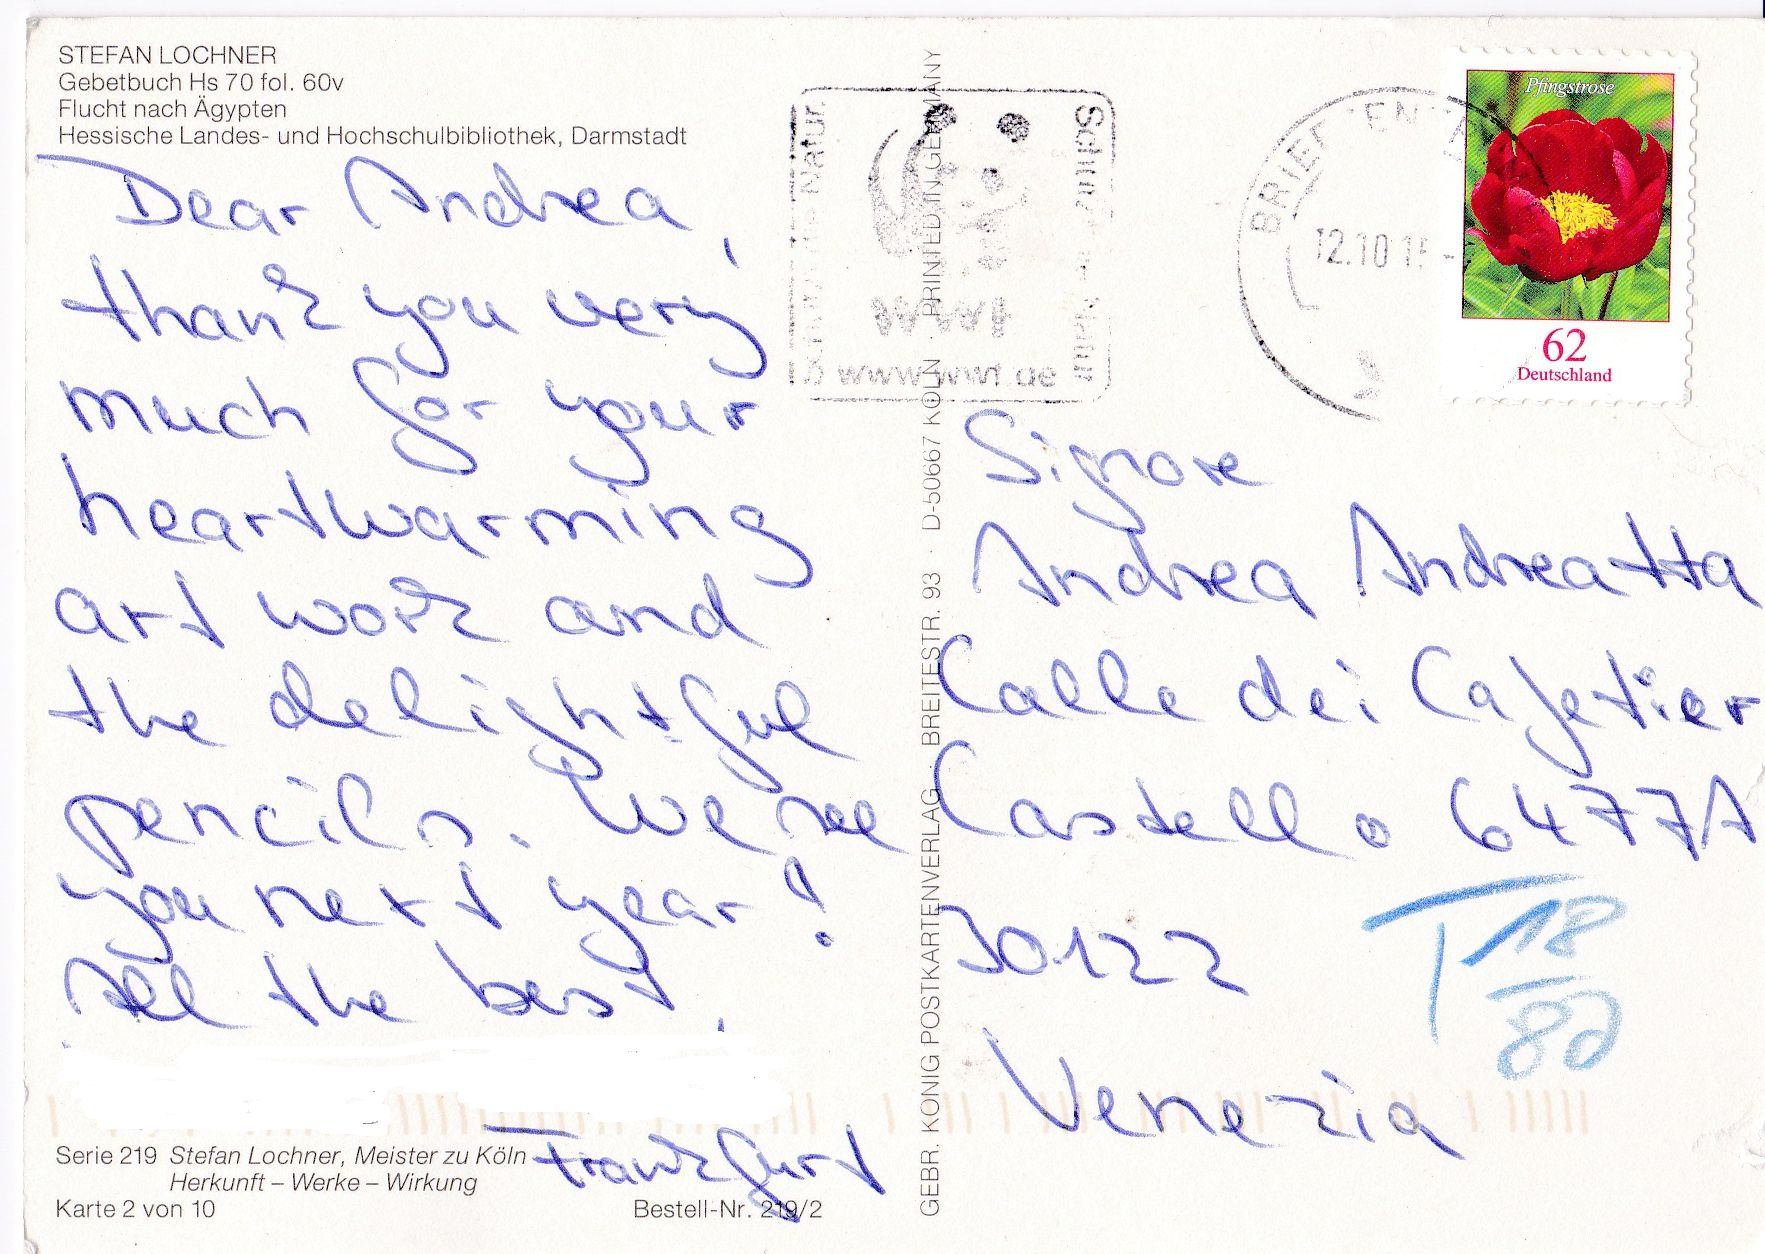 STEFAN LOCHNER
Gebetbuch Hs 70 fol. 60v
Flucht nach Ägypten
Hessische Landes- und Hochschulbibliothek, Darmstadt
Dear Andrea,
thank you very
much for your
heartwarming
art work and
the delightful
pencils. We see
you next year!
All the best,
Frankfurt
Serie 219 Stefan Lochner, Meister zu Köln
Herkunft – Werke – Wirkung
Karte 2 von 10
Bestell-Nr. 219/2
GEBR. KÖNIG POSTKARTENVERLAG · BREITESTR. 93 · D-50667 KÖLN · PRINTED IN GERMANY
Natur.
WWF
www.wwf.de
12.10.15
Pfingstrose
62
Deutschland
Signore
Andrea Andreatta
Calle dei Cafetier
Castello 6477A
30122
Venezia
T 18
80